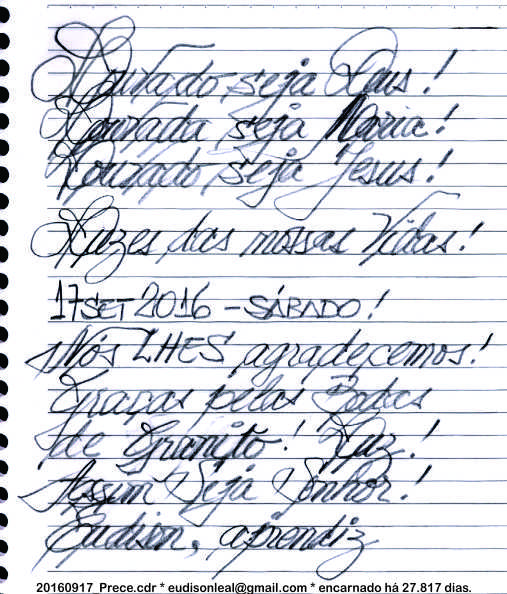 Louvado seja Deus!
Louvada seja Maria!
Louvado seja Jesus!
Luzes das nossas Vidas!
17SET2016 - SÁBADO!
Nós LHES agradecemos!
Graças pelas Bodas
de Granito! Luz!
Assim Seja Senhor!
Eudison, aprendiz
20160917_Prece.cdr * eudisonleal@gmail.com * encarnado há 27.817 dias.